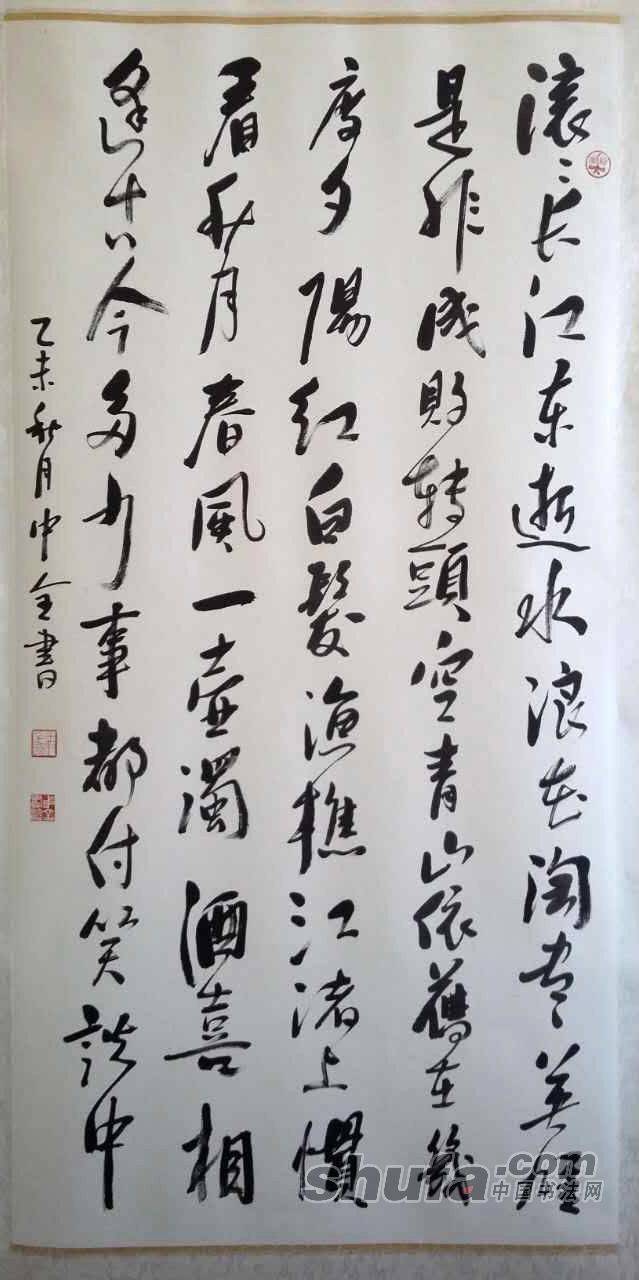 滚々长江东逝水浪花淘尽英雄
是非成敗轉頭空青山依舊在幾
度夕陽红白髮渔樵江渚上慣
看秋月春風一壶濁酒喜相
逢古今多少事都付笑談中
乙未秋月中全書
shufa.com
中国书法网